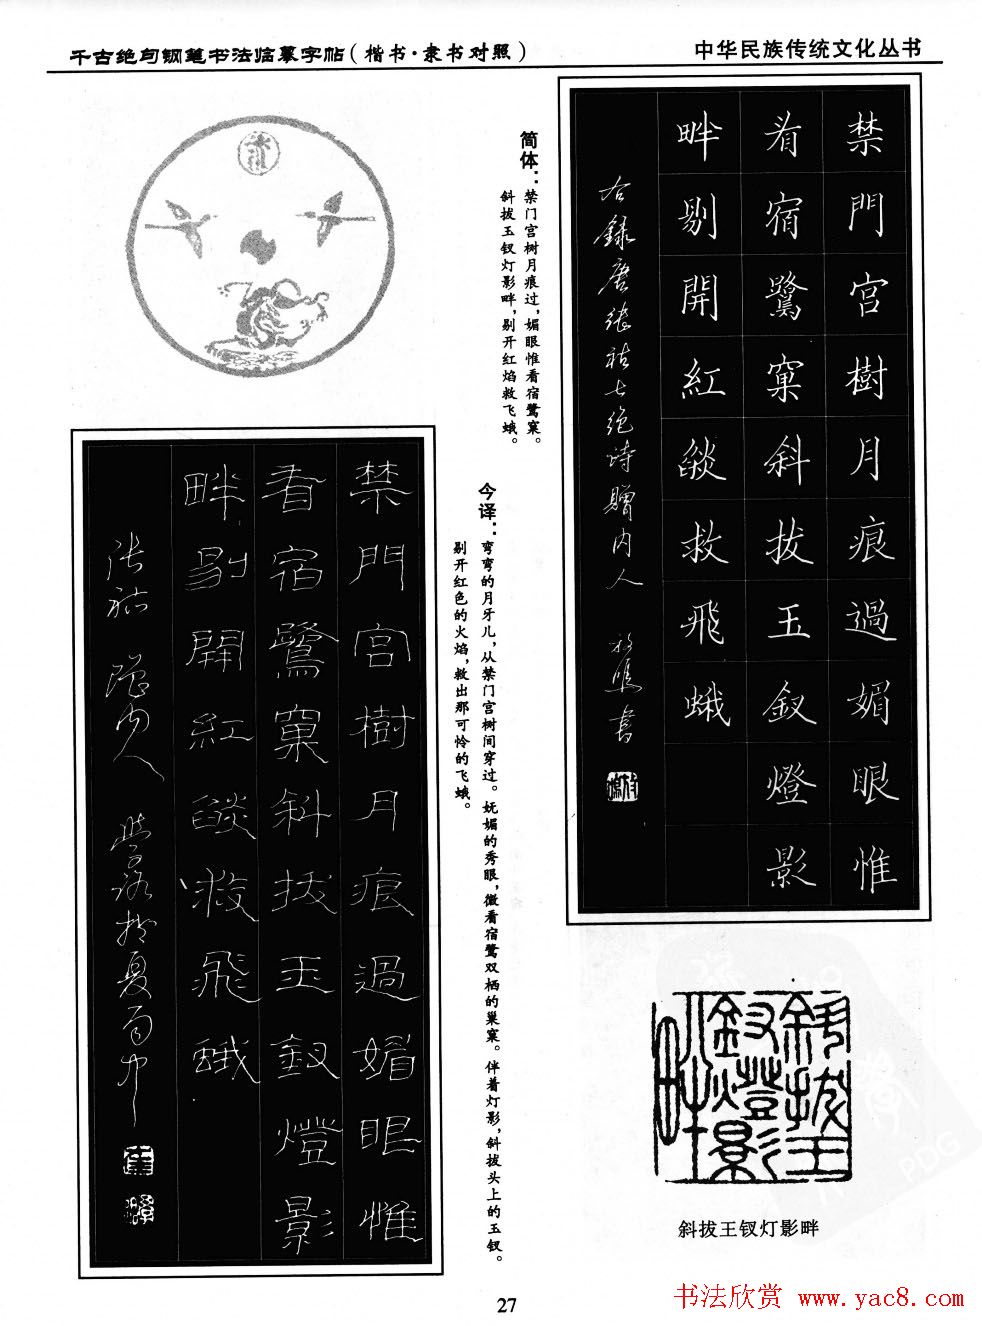 千古绝句钢笔书法临摹字帖(楷书·隶书对照)
中华民族传统文化丛书
禁門宫樹月痕過媚眼惟
看宿鷺窠斜拔玉釵燈影
畔剔開紅燄救飛蛾
右錄唐張祜七绝诗贈内人
书
简体：禁门宫树月痕过，媚眼惟看宿鹭窠。
斜拔玉钗灯影畔，剔开红焰救飞蛾。
今译：弯弯的月牙儿，从禁门宫树间穿过。妩媚的秀眼，微看宿鹭双栖的巢窠。伴着灯影，斜拔头上的玉钗。
剔开红色的火焰，救出那可怜的飞蛾。
禁門宫樹月痕過媚眼惟
看宿鷺窠斜拔玉釵燈影
畔剔開紅燄救飛蛾
张祜 赠内人
斜拔玉釵燈影畔
斜拔王钗灯影畔
27
书法欣赏 www.yac8.com